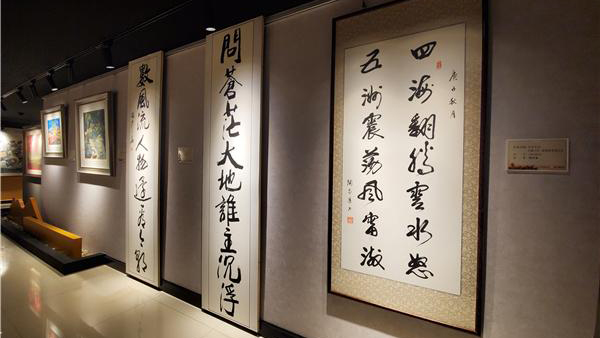 庚子秋月
四海翻騰雲水怒
五洲震荡風雷激
問蒼茫大地誰主沉浮
數風流人物還看今朝